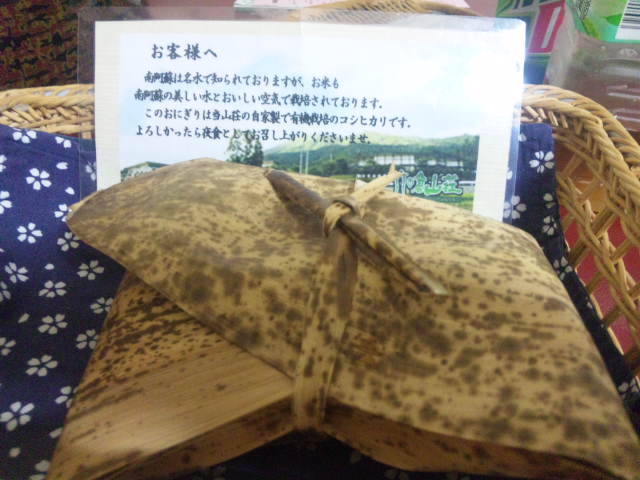 お客様へ
南阿蘇は名水で知られておりますが、お米も
南阿蘇の美しい水とおいしい空気で栽培されております。
このおにぎりは当山荘の自家製で有機栽培のコシヒカリです。
よろしかったら夜食としてお召し上がりくださいませ。
山荘